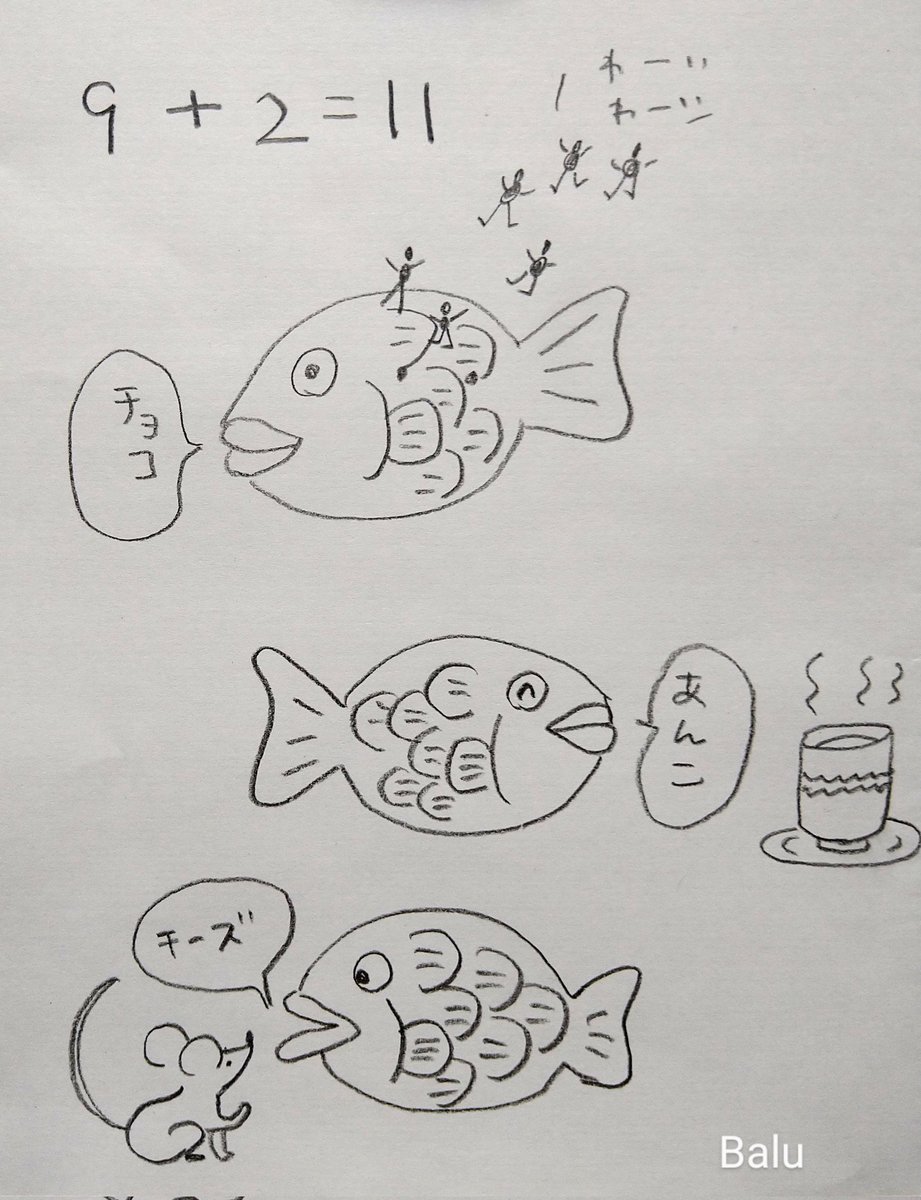 9 + 2 = 11
わーい
わーい
チョコ
あんこ
チーズ
Balu